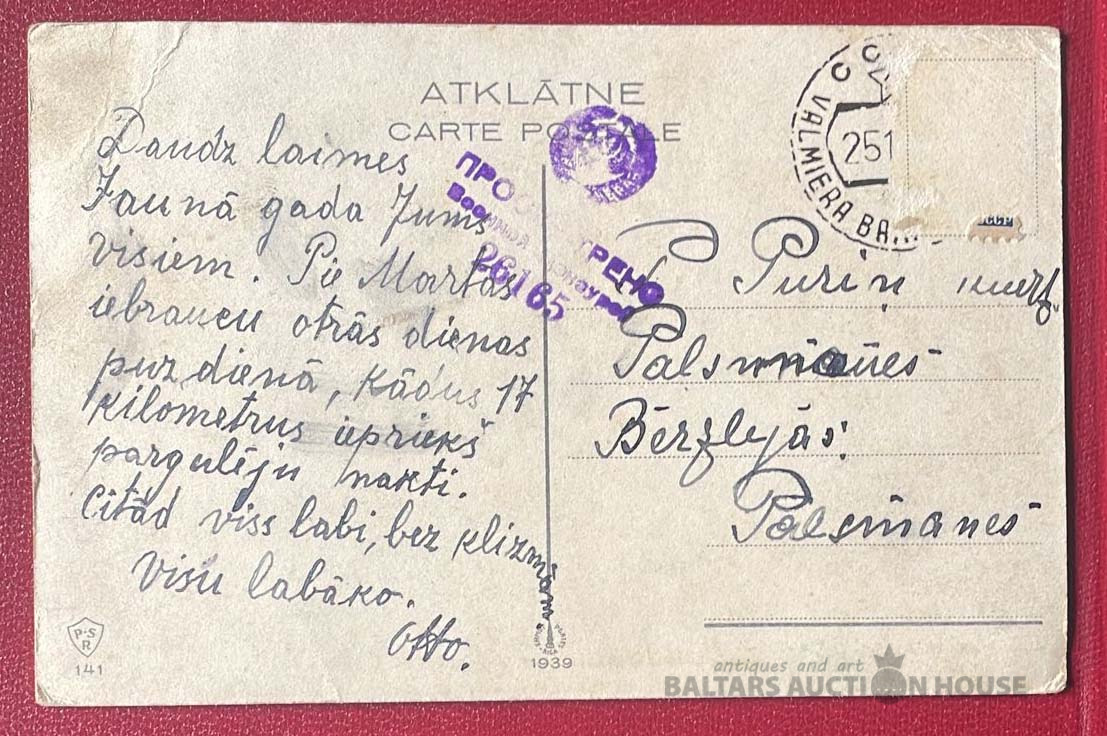 ATKLĀTNE
CARTE POSTALE
Daudz laimes
Jaunā gada Jums
visiem. Pie Martas
iebraucu otrās dienas
puzdienā, kādus 17
kilometrus iepriekš
pargulēju nakti.
Citād viss labi, bez klizmā
Visu labāko.
Otto.
P.S
R
141
1939
ПРОС ТРЕНО
Военной
26165
VALMIERA
251
Puriņ
Palsmanes
Bērzlejās.
Palsmanes
antiques and art
BALTARS AUCTION HOUSE